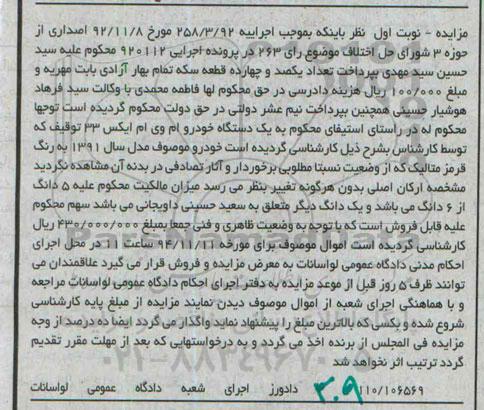 مزایده - نوبت اول نظر باینکه بموجب اجراییه ۲۵۸/۳/۹۲ مورخ ۹۲/۱۱/۸ اصداری از
حوزه ۳ شورای حل اختلاف موضوع رای ۲۶۳ در پرونده اجرایی ۹۲۰۱۱۲ محکوم علیه سید
حسین سید مهدی بپرداخت تعداد یکصد و چهارده قطعه سکه تمام بهار آزادی بابت مهریه و
مبلغ ۱۰۰/۰۰۰ ریال هزینه دادرسی در حق محکوم لها فاطمه محمدی با وکالت سید فرهاد
هوشیار حسینی همچنین بپرداخت نیم عشر دولتی در حق دولت محکوم گردیده است توجها
محکوم له در راستای استیفای محکوم به یک دستگاه خودرو ام وی ام ایکس ۳۳ توقیف که
توسط کارشناس بشرح ذیل کارشناسی گردیده است خودرو موصوف مدل سال ۱۳۹۱ به رنگ
قرمز متالیک که از وضعیت نسبتا مطلوبی برخوردار و آثار تصادفی در بدنه آن مشاهده نگردید
مشخصه ارکان اصلی بدون هرگونه تغییر بنظر می رسد میزان مالکیت محکوم علیه ۵ دانگ
از ۶ دانگ می باشد و یک دانگ دیگر متعلق به سعید حسینی داویجانی می باشد سهم محکوم
علیه قابل فروش است که با توجه به وضعیت ظاهری و فنی جمعا بمبلغ ۴۳۰/۰۰۰/۰۰۰ ریال
کارشناسی گردیده است اموال موصوف برای مورخه ۹۴/۱۱/۱۱ ساعت ۱۱ در محل اجرای
احکام مدنی دادگاه عمومی لواسانات به معرض مزایده و فروش قرار می گیرد علاقمندان می
توانند ظرف ۵ روز قبل از موعد مزایده به دفتر اجرای احکام دادگاه عمومی لواسانات مراجعه
و با هماهنگی اجرای شعبه از اموال موصوف دیدن نمایند مزایده از مبلغ پایه کارشناسی
شروع شده و بکسی که بالاترین مبلغ را پیشنهاد نماید واگذار می گردد ایضا ده درصد از وجه
مزایده فی المجلس از برنده اخذ می گردد و به درخواستهایی که بعد از مهلت مقرر تقدیم
گردد ترتیب اثر نخواهد شد
۱۱۰/۱۰۶۵۶۹ ۳۰۹ دادورز اجرای شعبه دادگاه عمومی لواسانات
۰۲۱-۸۸۳۴۹۶۷۰